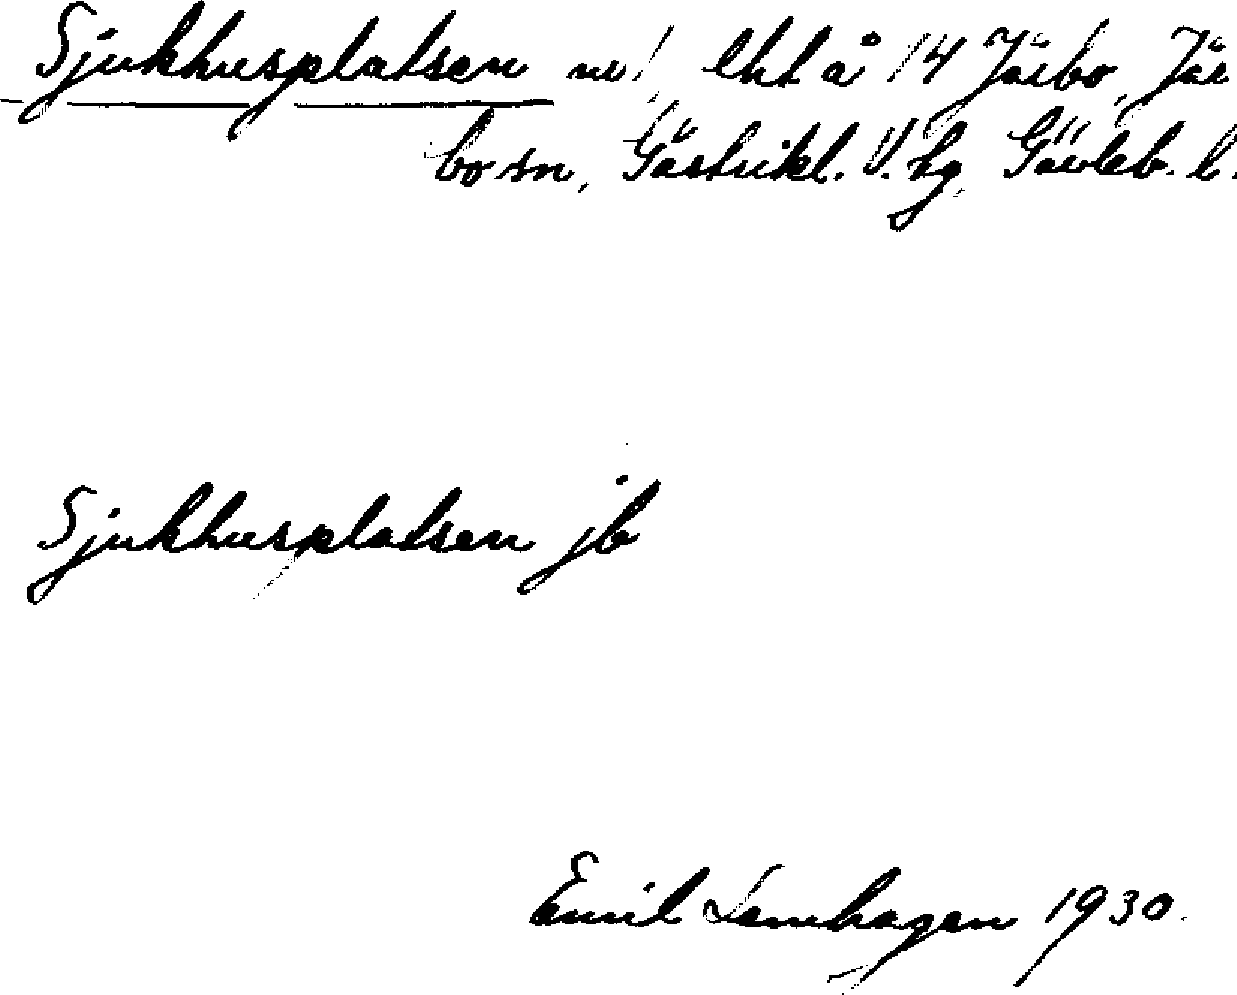 Sjukhusplatsen
å 14 Järbo, Jär
bo sn, Gästrikl. V. hg, Gävleb. l.
Sjukhusplatsen jb
Emil Lenhagen 1930.